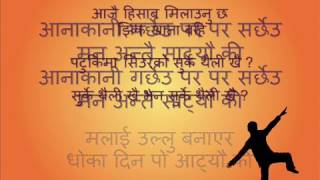 आजै हिसाब मिलाउनु छ
आनाकानी गर्छेउ पर पर सर्छेउ
झिक खाता बहि
मन अन्तै साट्यौ की
पटुकिमा सिउरेको सुर्के थैली खै ?
आनाकानी गर्छेउ पर पर सर्छेउ
सुर्के थैली खै भन सुर्के थैली खै ?
मन अन्तै साट्यौ की
मलाई उल्लु बनाएर
धोका दिन पो आट्यौ की